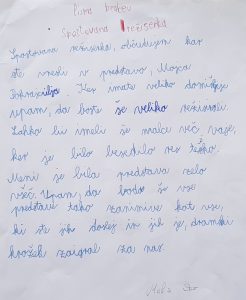 Prva bralev
Spoštovana režiserka
Spoštovana režiserka, občudujem kar
ste vnesli v predstavo, Mojca
Pokraculja. Ker imate veliko domišljije
upam, da boste še veliko režirali.
Lahko bi imeli še malce več vaje,
ker je bilo besedilo res težko.
Meni je bila predstava zelo
všeč. Upam, da bodo še vse
predstave tako zanimive kot vse,
ki ste jih doslej in jih je, dramski
krožek zaigral za nas.